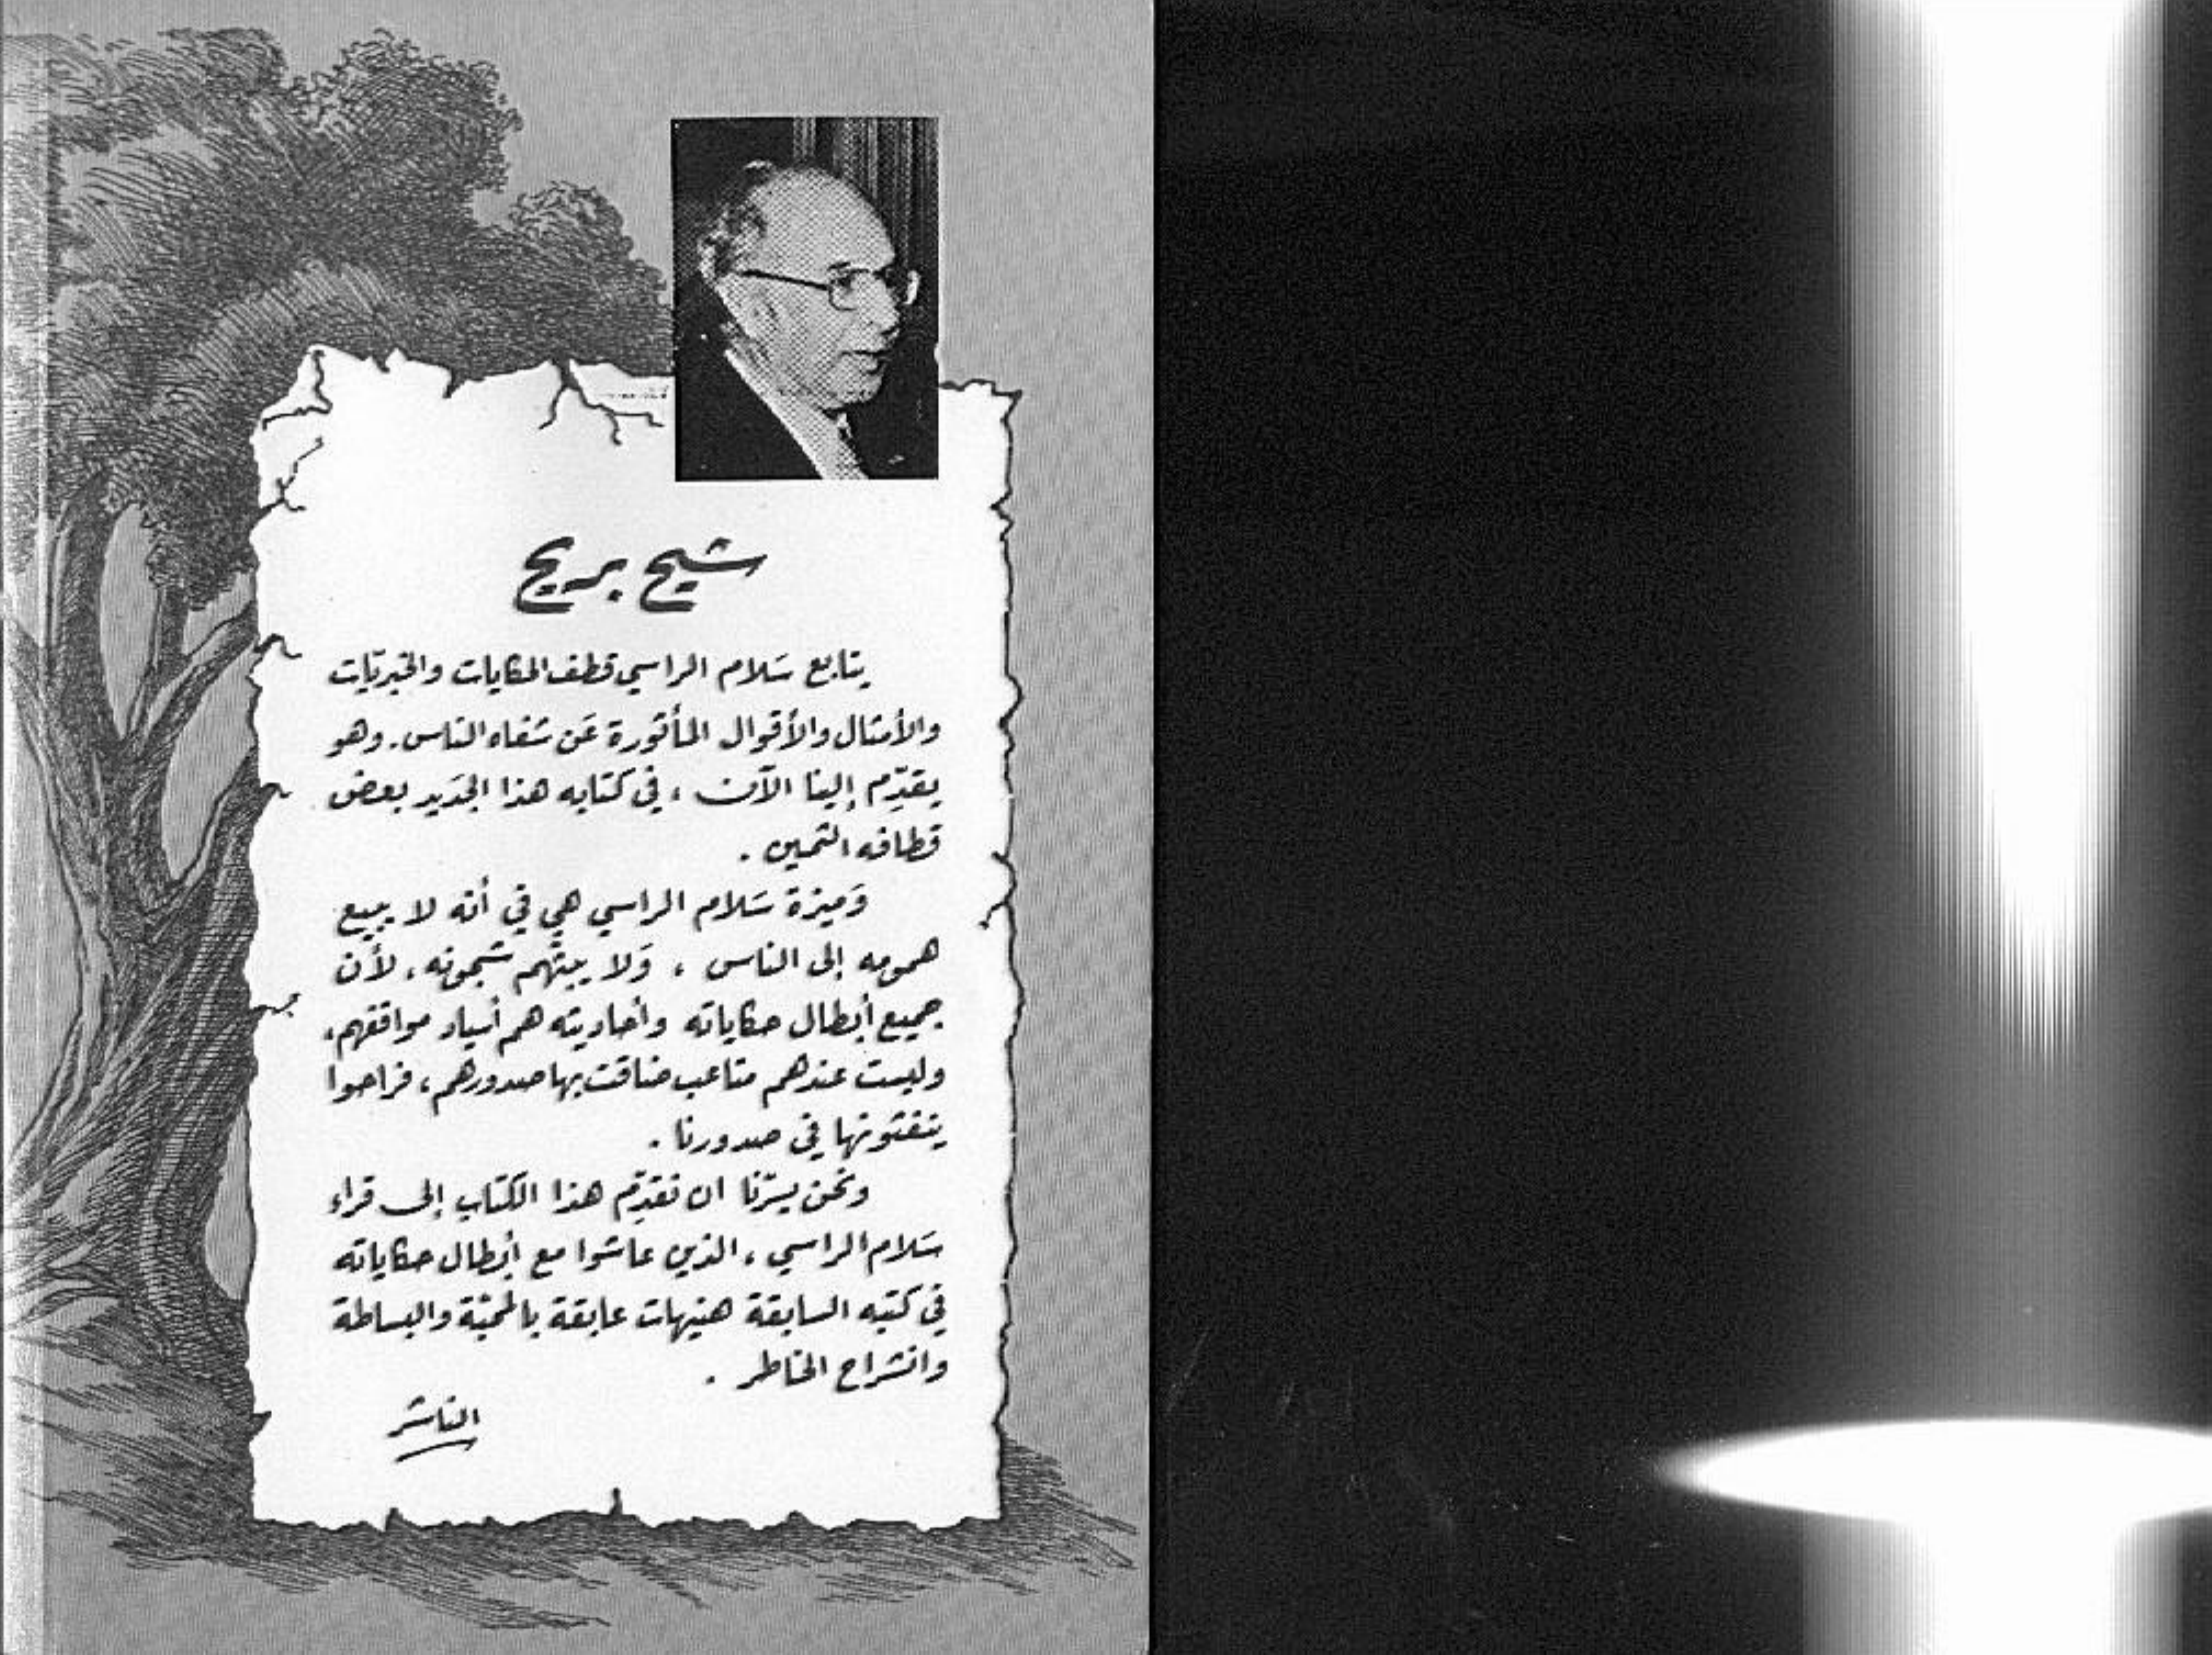 شيح بريح
يتابع سَلام الراسي قطف الحكايات والخبريّات
والأمثال والأقوال المأثورة عَن شفاه الناس. وهو
يقدّم إلينا الآن ، في كتابه هذا الجَديد بعض
قطافه الثمين .
وَميزة سَلام الراسي هي في أنه لا يبيع
همومه إلى الناس ، وَلا يبثّهم شجونه ، لأن
جميع أبطال حكاياته وأحاديثه هم أسياد مواقفهم ،
وليست عندهم متاعب ضاقت بها صدورهم ، فراحوا
ينفثونها في صدورنا .
ونحن يسرّنا ان نقدّم هذا الكتاب إلى قراء
سَلام الراسي ، الذين عاشوا مع أبطال حكاياته
في كتبه السابقة هنيهات عابقة بالمحبّة والبساطة
وانشراح الخاطر .
الناشر